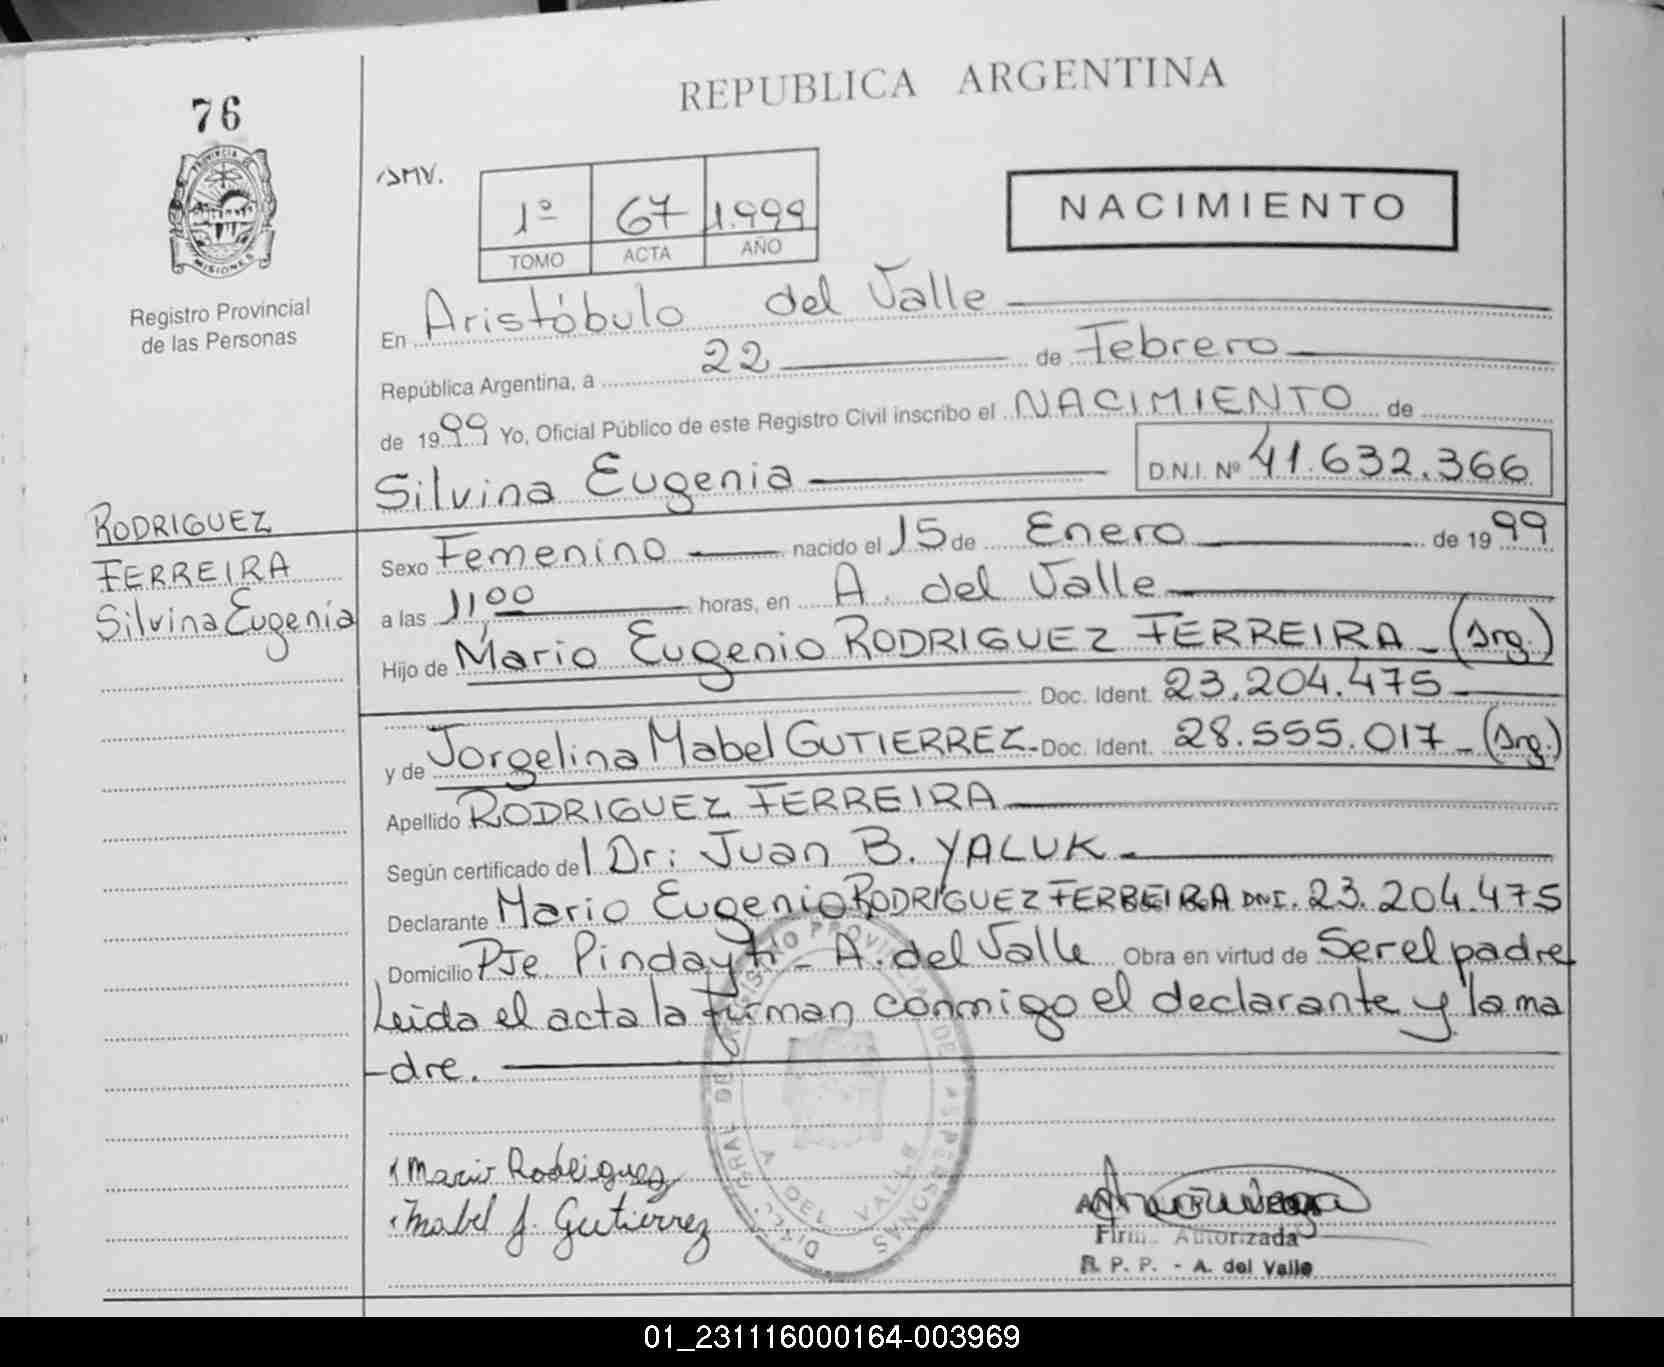 REPUBLICA ARGENTINA
76
PROVINCIA DE MISIONES
Registro Provincial
de las Personas
1º 67 1.999
TOMO ACTA AÑO
NACIMIENTO
En Aristóbulo del Valle
República Argentina, a 22 de Febrero
de 1999 Yo, Oficial Público de este Registro Civil inscribo el NACIMIENTO de
Silvina Eugenia D.N.I. Nº 41.632.366
RODRIGUEZ
FERREIRA
Silvina Eugenia
Sexo Femenino nacido el 15 de Enero de 1999
a las 11,00 horas, en A. del Valle
Hijo de Mario Eugenio RODRIGUEZ FERREIRA - (Arg.)
Doc. Ident. 23.204.475
y de Jorgelina Mabel GUTIERREZ - Doc. Ident. 28.555.017 - (Arg.)
Apellido RODRIGUEZ FERREIRA
Según certificado del Dr: Juan B. YALUK
Declarante Mario Eugenio RODRIGUEZ FERREIRA DNI. 23.204.475
Domicilio Pje Pindayti - A. del Valle Obra en virtud de Ser el padre
Leida el acta la firman conmigo el declarante y la ma
-dre.
Mario Rodriguez
Mabel J. Gutierrez
Firm. Autorizada
R. P. P. - A. del Valle
01_231116000164-003969